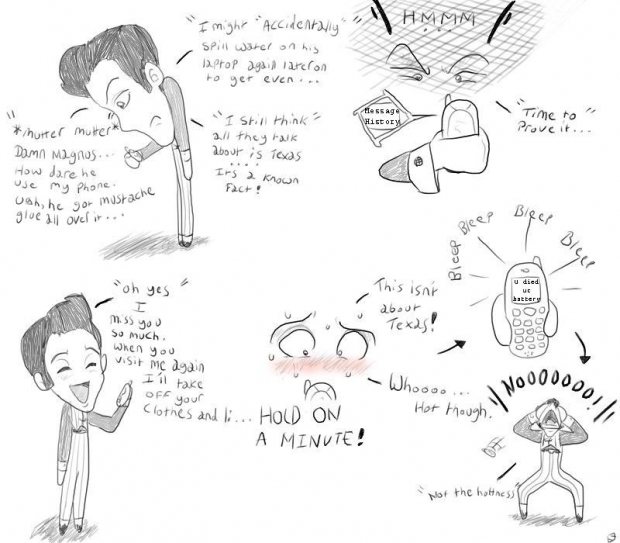 "I might "Accidentally"
Spill water on his
laptop again later on
to get even..."
"*Mutter mutter*
Damn Magnus...
How dare he
use my phone.
Ugh, he got mustache
glue all over it...
"I Still think"
all they talk
about is Texas
....
It's a known
Fact!
HMMM
...
Message
History
"Time to"
Prove it...
"oh yes"
I
miss you
so much.
When you
visit me again
I'll take
off your
Clothes and li...
HOLD ON
A MINUTE!
"This isn't
about
Texas!
Whoooo...
Hot though.
Bleep
Bleep
Bleep
Bleep
u died
ur
battery
NOOOOOOO!
"Not the hotness"